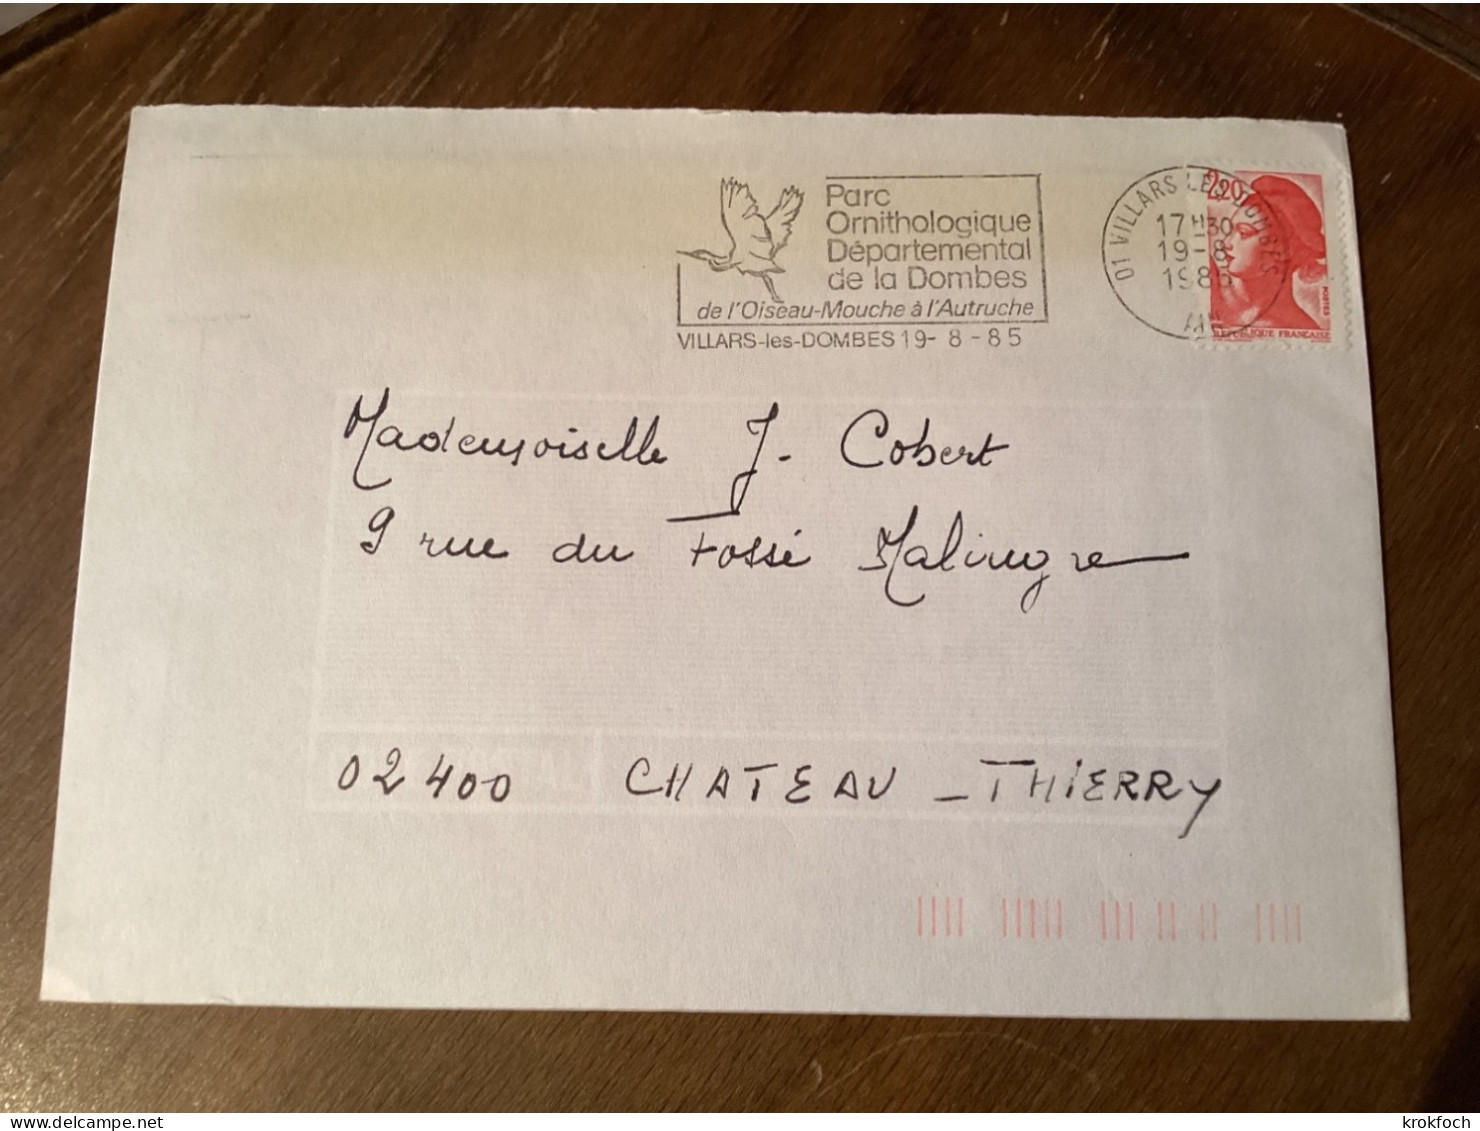 Parc
Ornithologique
Départemental
de la Dombes
de l'Oiseau-Mouche à l'Autruche
VILLARS-les-DOMBES 19-8-85
01 VILLARS LES DOMBES
17H30
19-8
1985
AIN
2,20
POSTES
REPUBLIQUE FRANCAISE
Mademoiselle J. Cobert
9 rue du Fossé Malingre
02400 CHATEAU-THiERRY
krokfoch